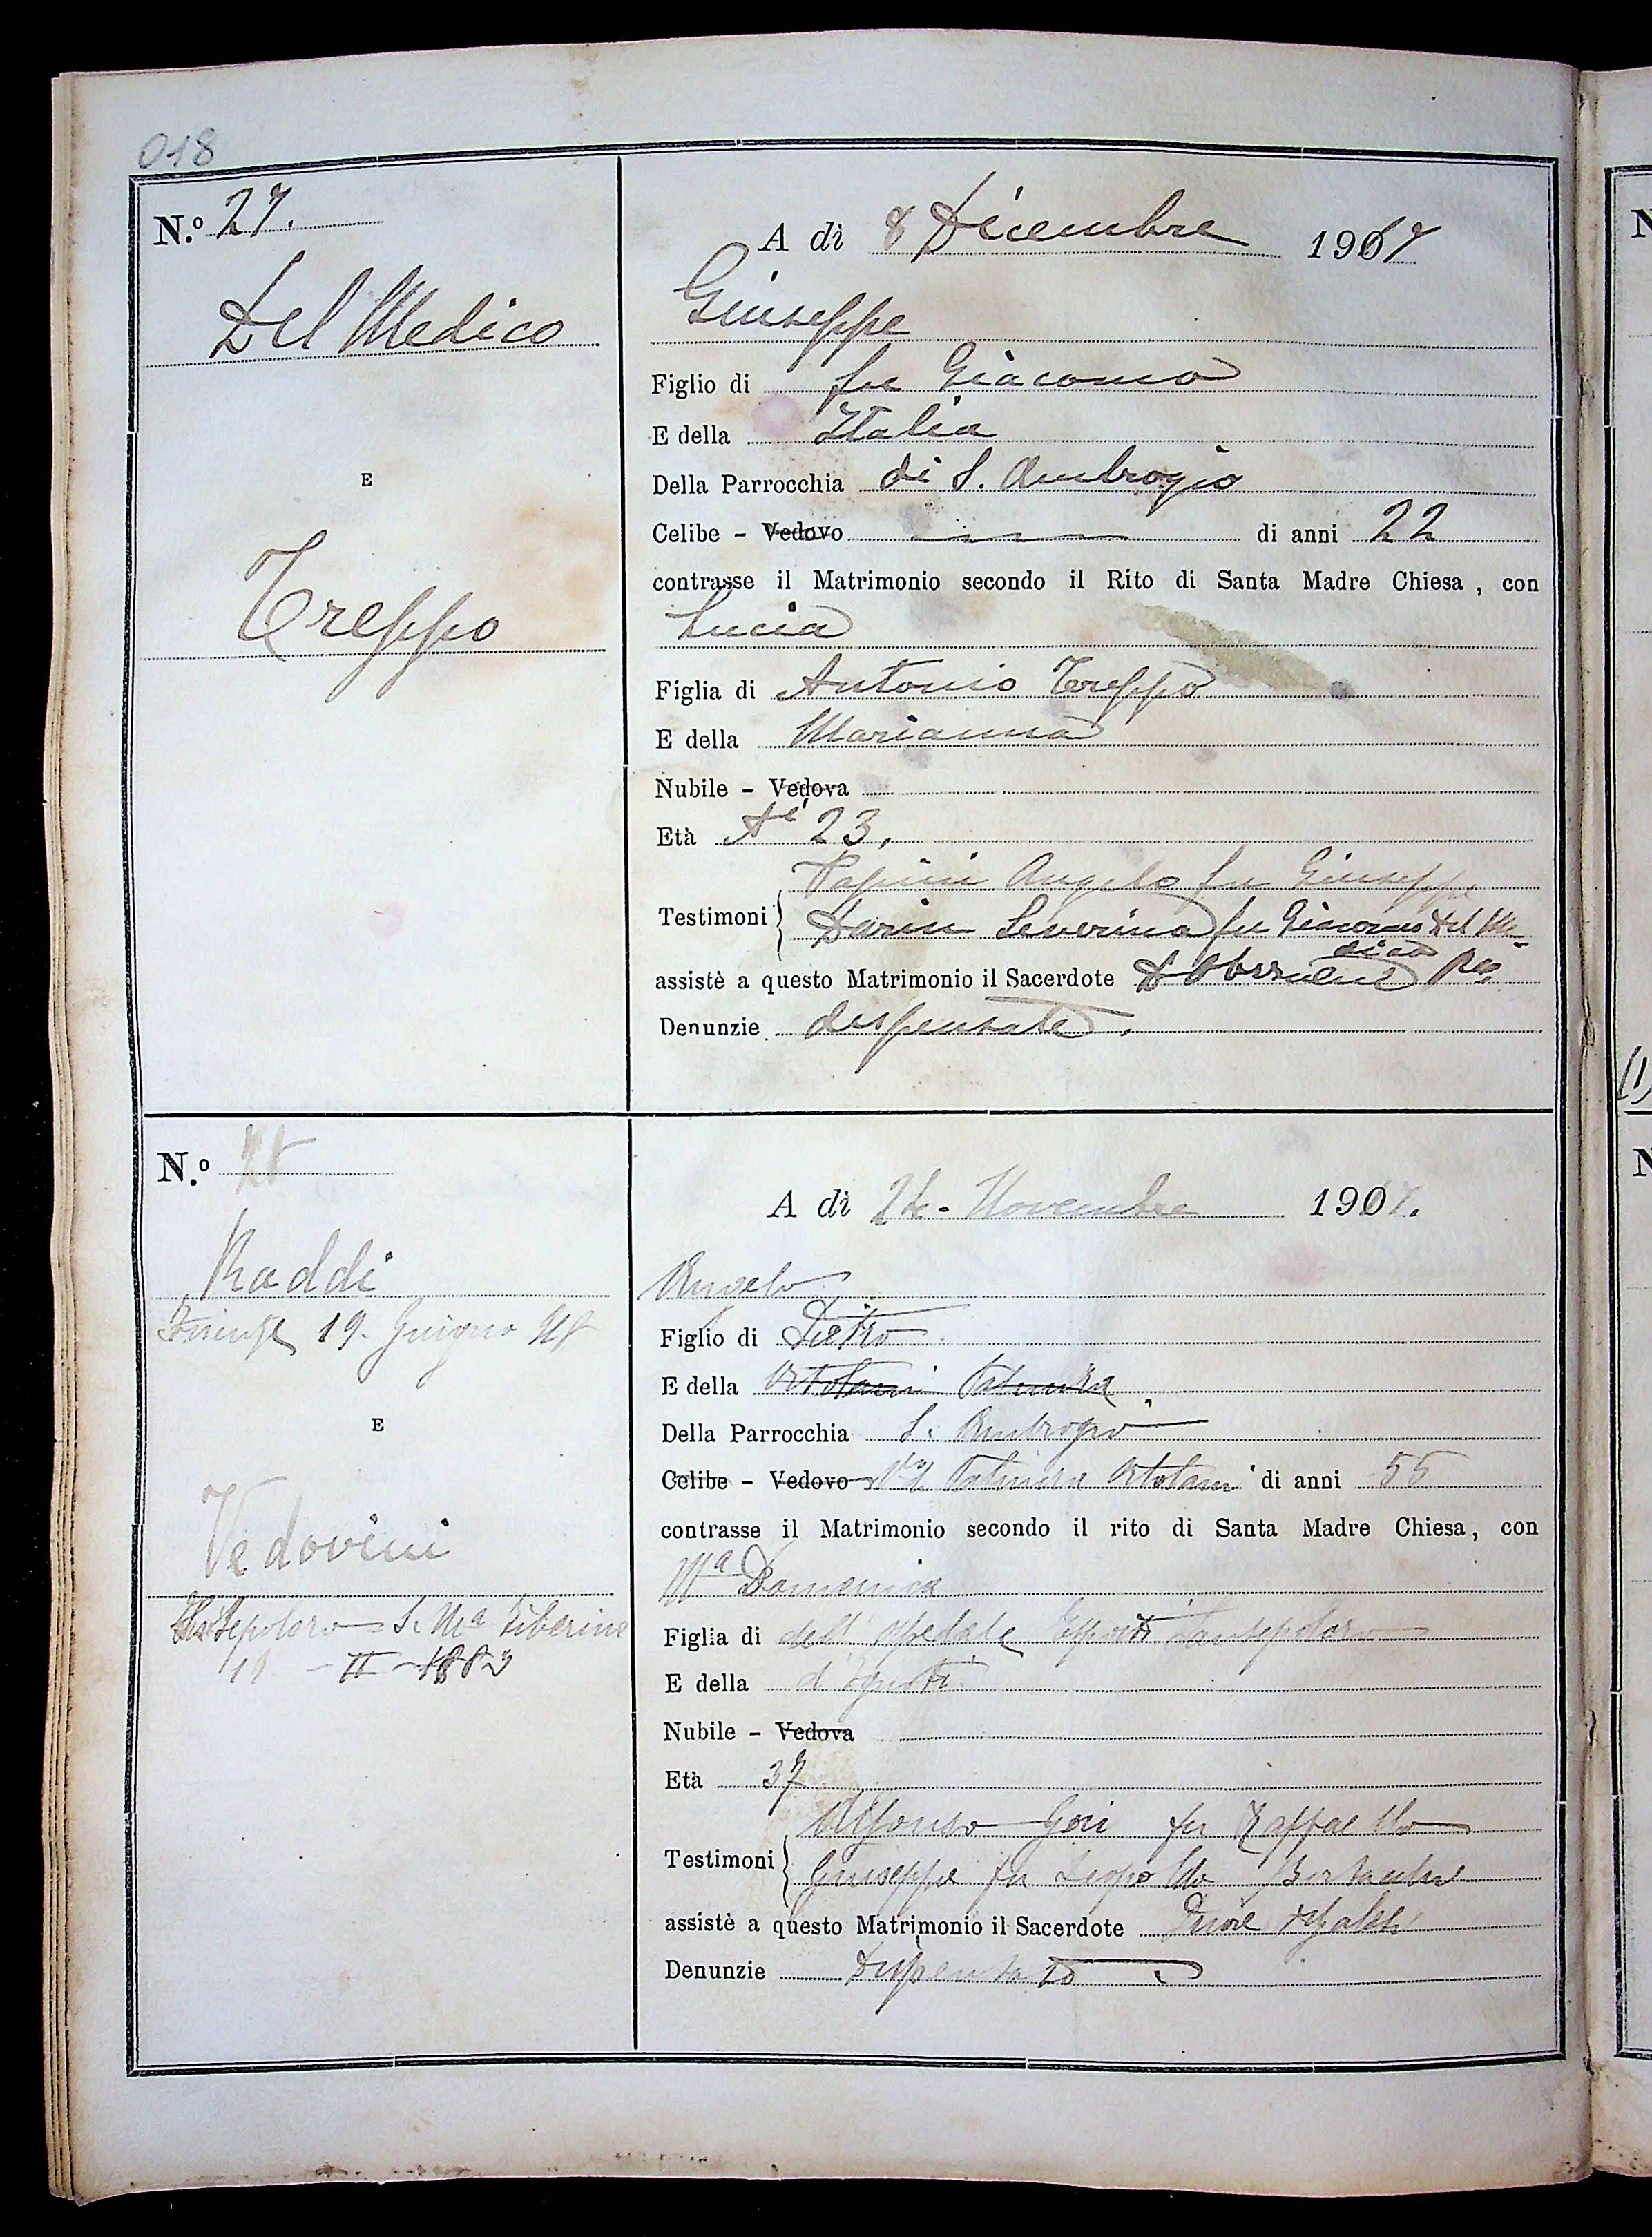 018
N.º 27.
Del Medico
E
Treppo
A dì 8 Dicembre 1917
Giuseppe
Figlio di fu Giacomo
E della Italia
Della Parrocchia di S. Ambrogio
Celibe - Vedovo di anni 22
contrasse il Matrimonio secondo il Rito di Santa Madre Chiesa, con
Lucia
Figlia di Antonio Treppo
E della Marianna
Nubile - Vedova
Età 23.
Papini Angelo fu Giuseppe
Testimoni Darin Severina fu Giacomo Del Me-
dico
assistè a questo Matrimonio il Sacerdote
Denunzie dispensate.
N.º 28
Raddi
Firenze 19. Giugno
E
Vedovini
Sansepolcro S. Mª Tiberina
11 - II - 1883
A dì 24. Novembre 1917.
Angelo
Figlio di Pietro
E della Ortolani Palmira
Della Parrocchia S. Ambrogio
Celibe - Vedovo Palmira Ortolani di anni 55
contrasse il Matrimonio secondo il rito di Santa Madre Chiesa, con
Mª Domenica
Figlia di dell' ospedale Esposti Sansepolcro
E della d'ignoti
Nubile - Vedova
Età 37
Alfonso Gori fu Raffaello
Testimoni Giuseppe fu Leopoldo
assistè a questo Matrimonio il Sacerdote Priore
Denunzie Dispensato